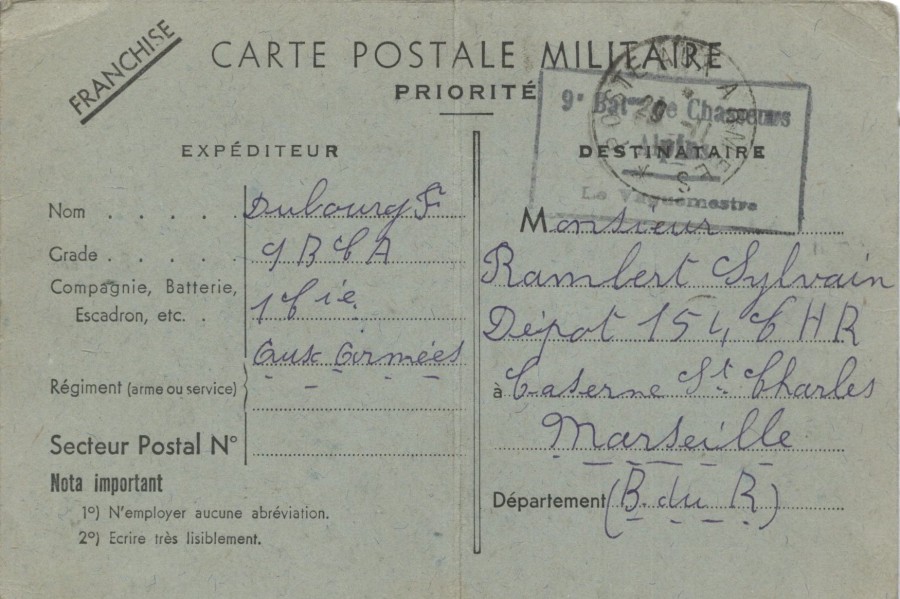 FRANCHISE
CARTE POSTALE MILITAIRE
PRIORITÉ
POSTE AUX ARMÉES
29
9e Baton de Chasseurs
Alpins
Le Vaguemestre
EXPÉDITEUR
Nom . . . . . Dubourg F
Grade . . . . . 9 B C A
Compagnie, Batterie,
Escadron, etc. . 1 Cie
Aux Armées
Régiment (arme ou service)
Secteur Postal N°
Nota important
1°) N'employer aucune abréviation.
2°) Ecrire très lisiblement.
DESTINATAIRE
Monsieur
Rambert Sylvain
Dépot 154 C H R
à Caserne St Charles
Marseille
Département (B. du R)